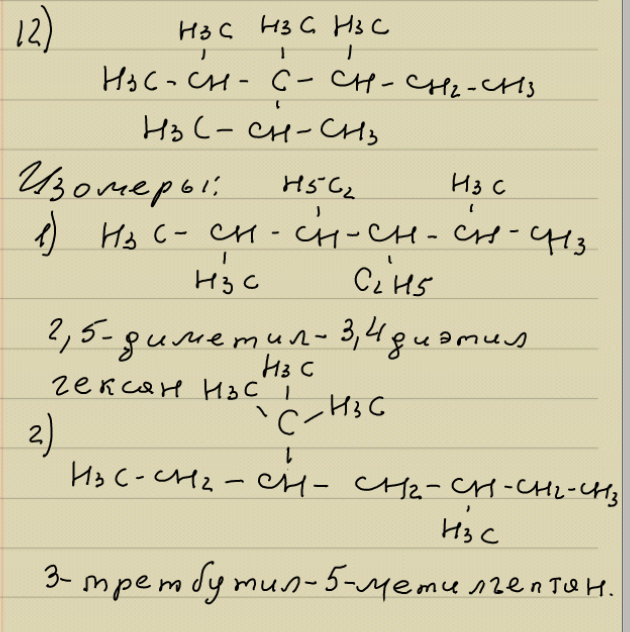 12)
H3C H3C H3C
H3C - CH - C - CH - CH2 - CH3
H3C - CH - CH3
Изомеры:
H5C2 H3C
1) H3C - CH - CH - CH - CH - CH3
H3C C2H5
2,5-диметил-3,4диэтил
гексан
H3C
H3C C H3C
2)
H3C - CH2 - CH - CH2 - CH - CH2 - CH3
H3C
3-третбутил-5-метилгептан.